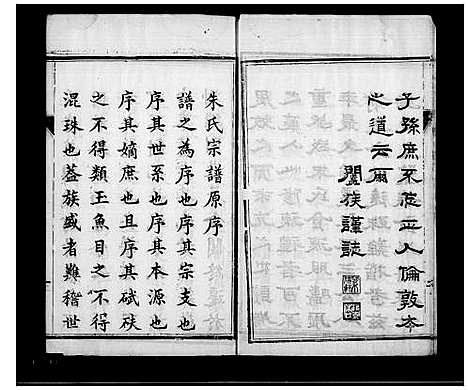 子孫庶不忘正人倫敦本
之道云爾
闔族謹誌
朱氏宗譜原序
譜之為序也序其宗支也
序其世系也序其本源也
序其嫡庶也且序其碔砆
之不得類玉魚目之不得
混珠也蓋族盛者難稽世